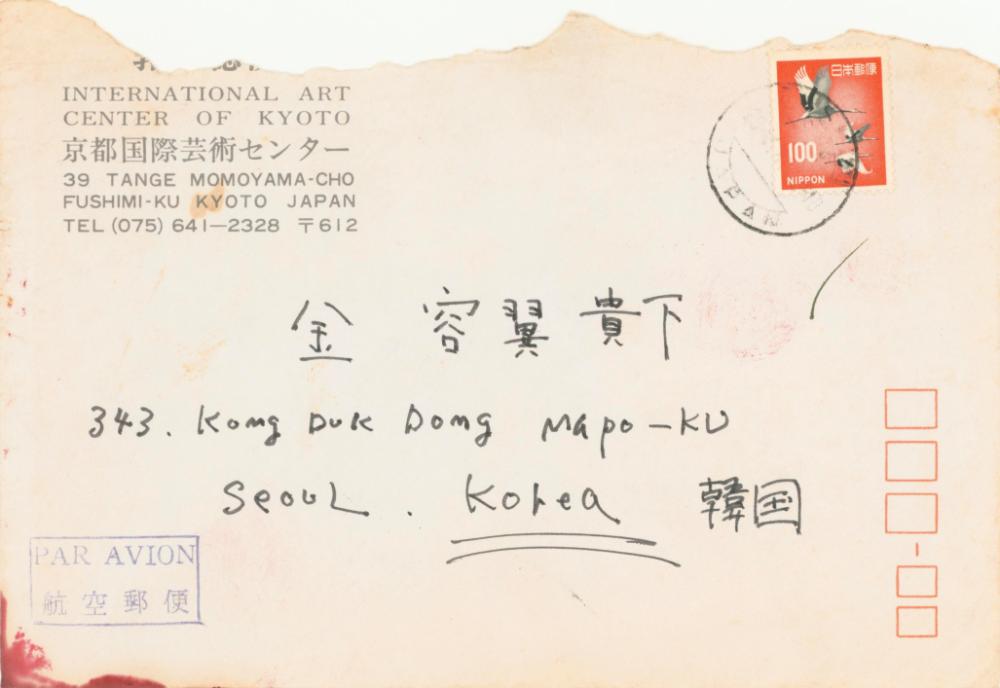 INTERNATIONAL ART
CENTER OF KYOTO
京都国際芸術センター
39 TANGE MOMOYAMA-CHO
FUSHIMI-KU KYOTO JAPAN
TEL (075) 641-2328 〒612
日本郵便
100
NIPPON
JAPAN
金 容翼 貴下
343. Kong DUK Dong Mapo-KU
Seoul. Korea 韓国
PAR AVION
航空郵便